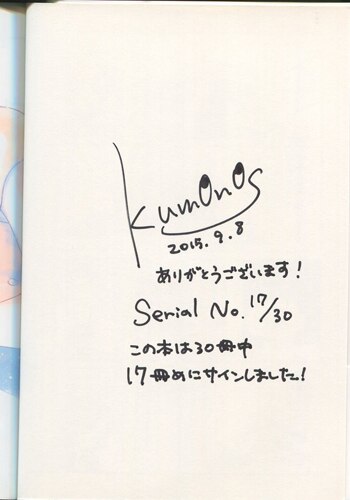 Kumonos
2015.9.8
ありがとうございます！
Serial No. 17/30
この本は30冊中
17冊めにサインしました！